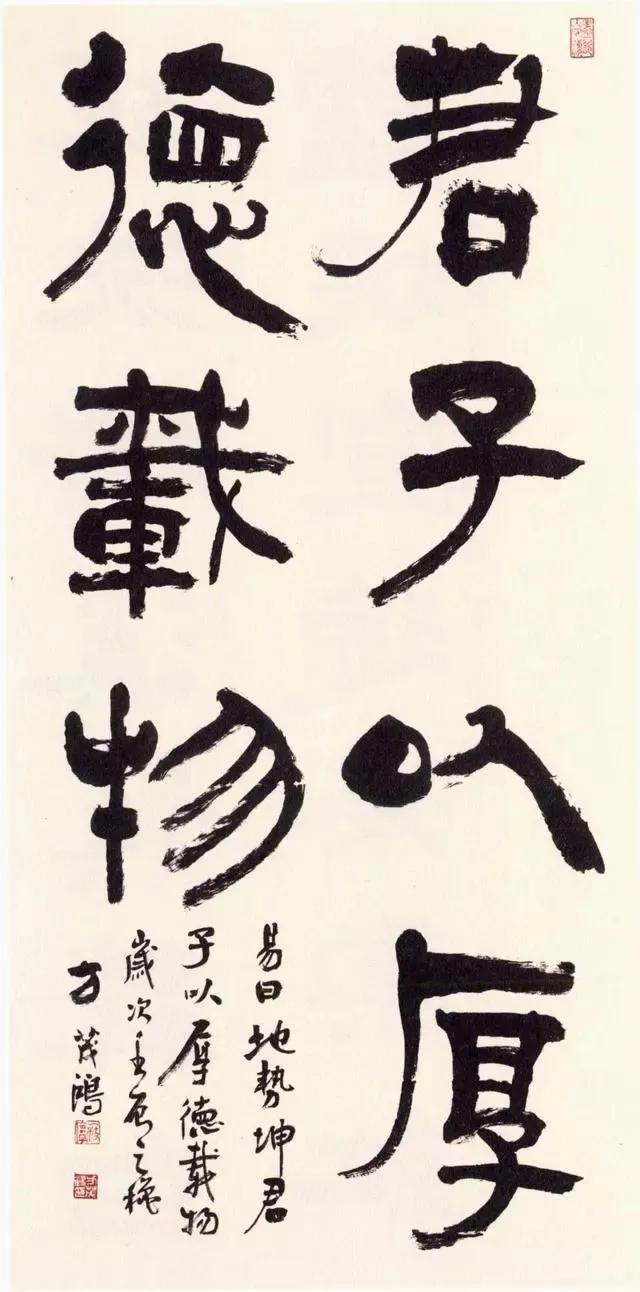 君子以厚
德載物
易曰地勢坤君
子以厚德載物
歲次之穐
方茂鴻